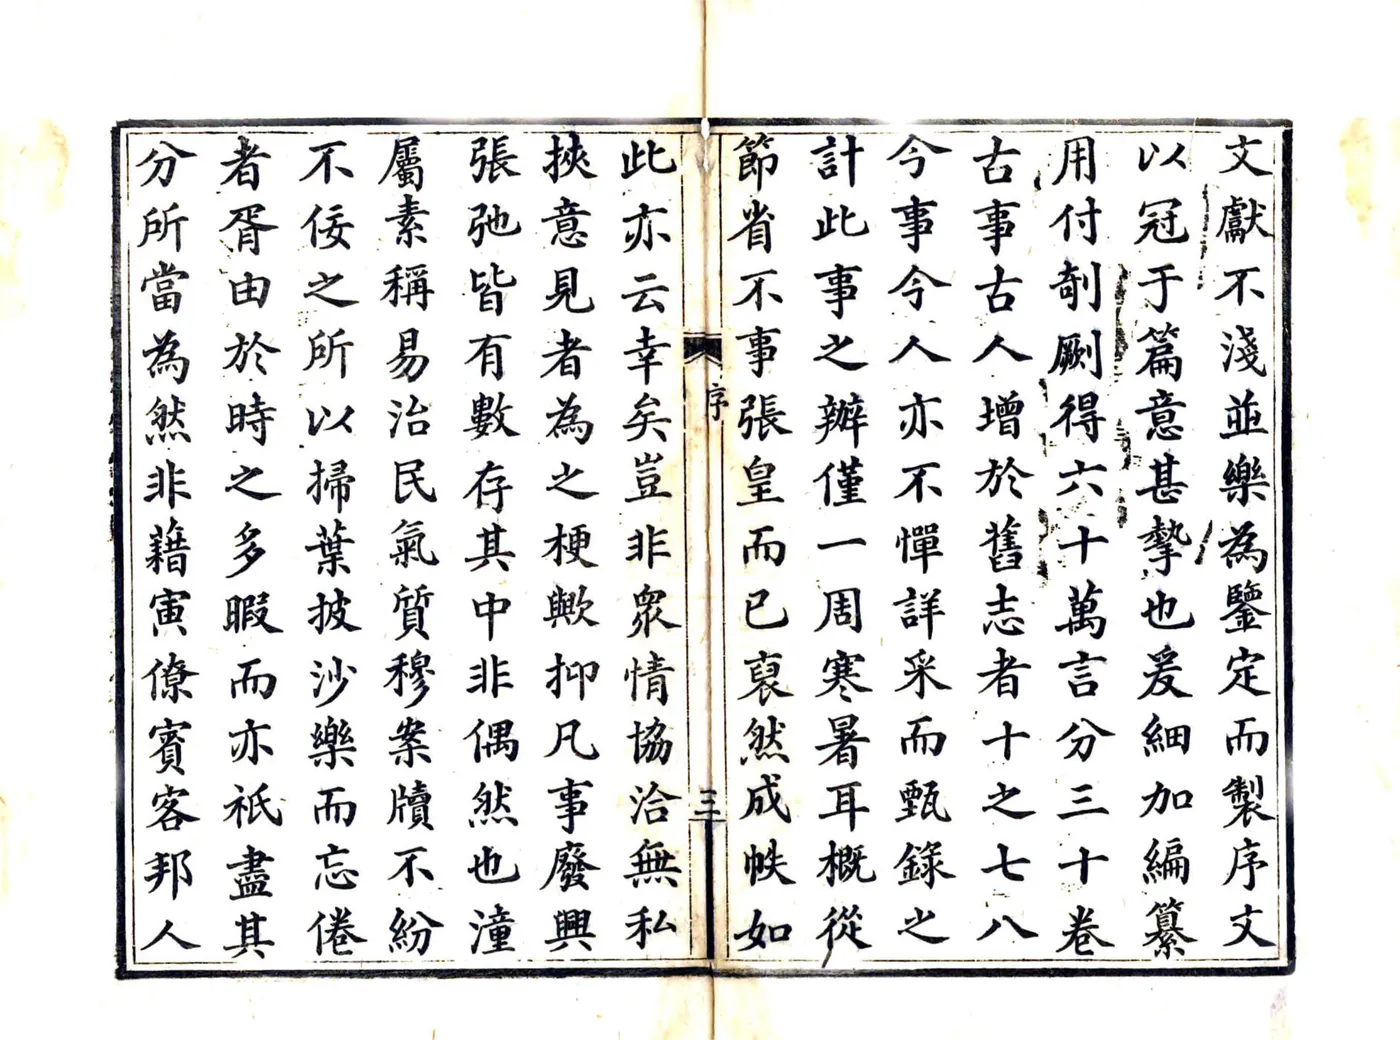 文獻不淺並樂為鑒定而製序文
以冠于篇意甚摯也爰細加編纂
用付剞劂得六十萬言分三十卷
古事古人增於舊志者十之七八
今事今人亦不憚詳采而甄錄之
計此事之辦僅一周寒暑耳概從
節省不事張皇而已裒然成帙如
序
三
此亦云幸矣豈非眾情協洽無私
挾意見者為之梗歟抑凡事廢興
張弛皆有數存其中非偶然也潼
屬素稱易治民氣質穆案牘不紛
不佞之所以掃葉披沙樂而忘倦
者胥由於時之多暇而亦祇盡其
分所當為然非藉寅僚賓客邦人